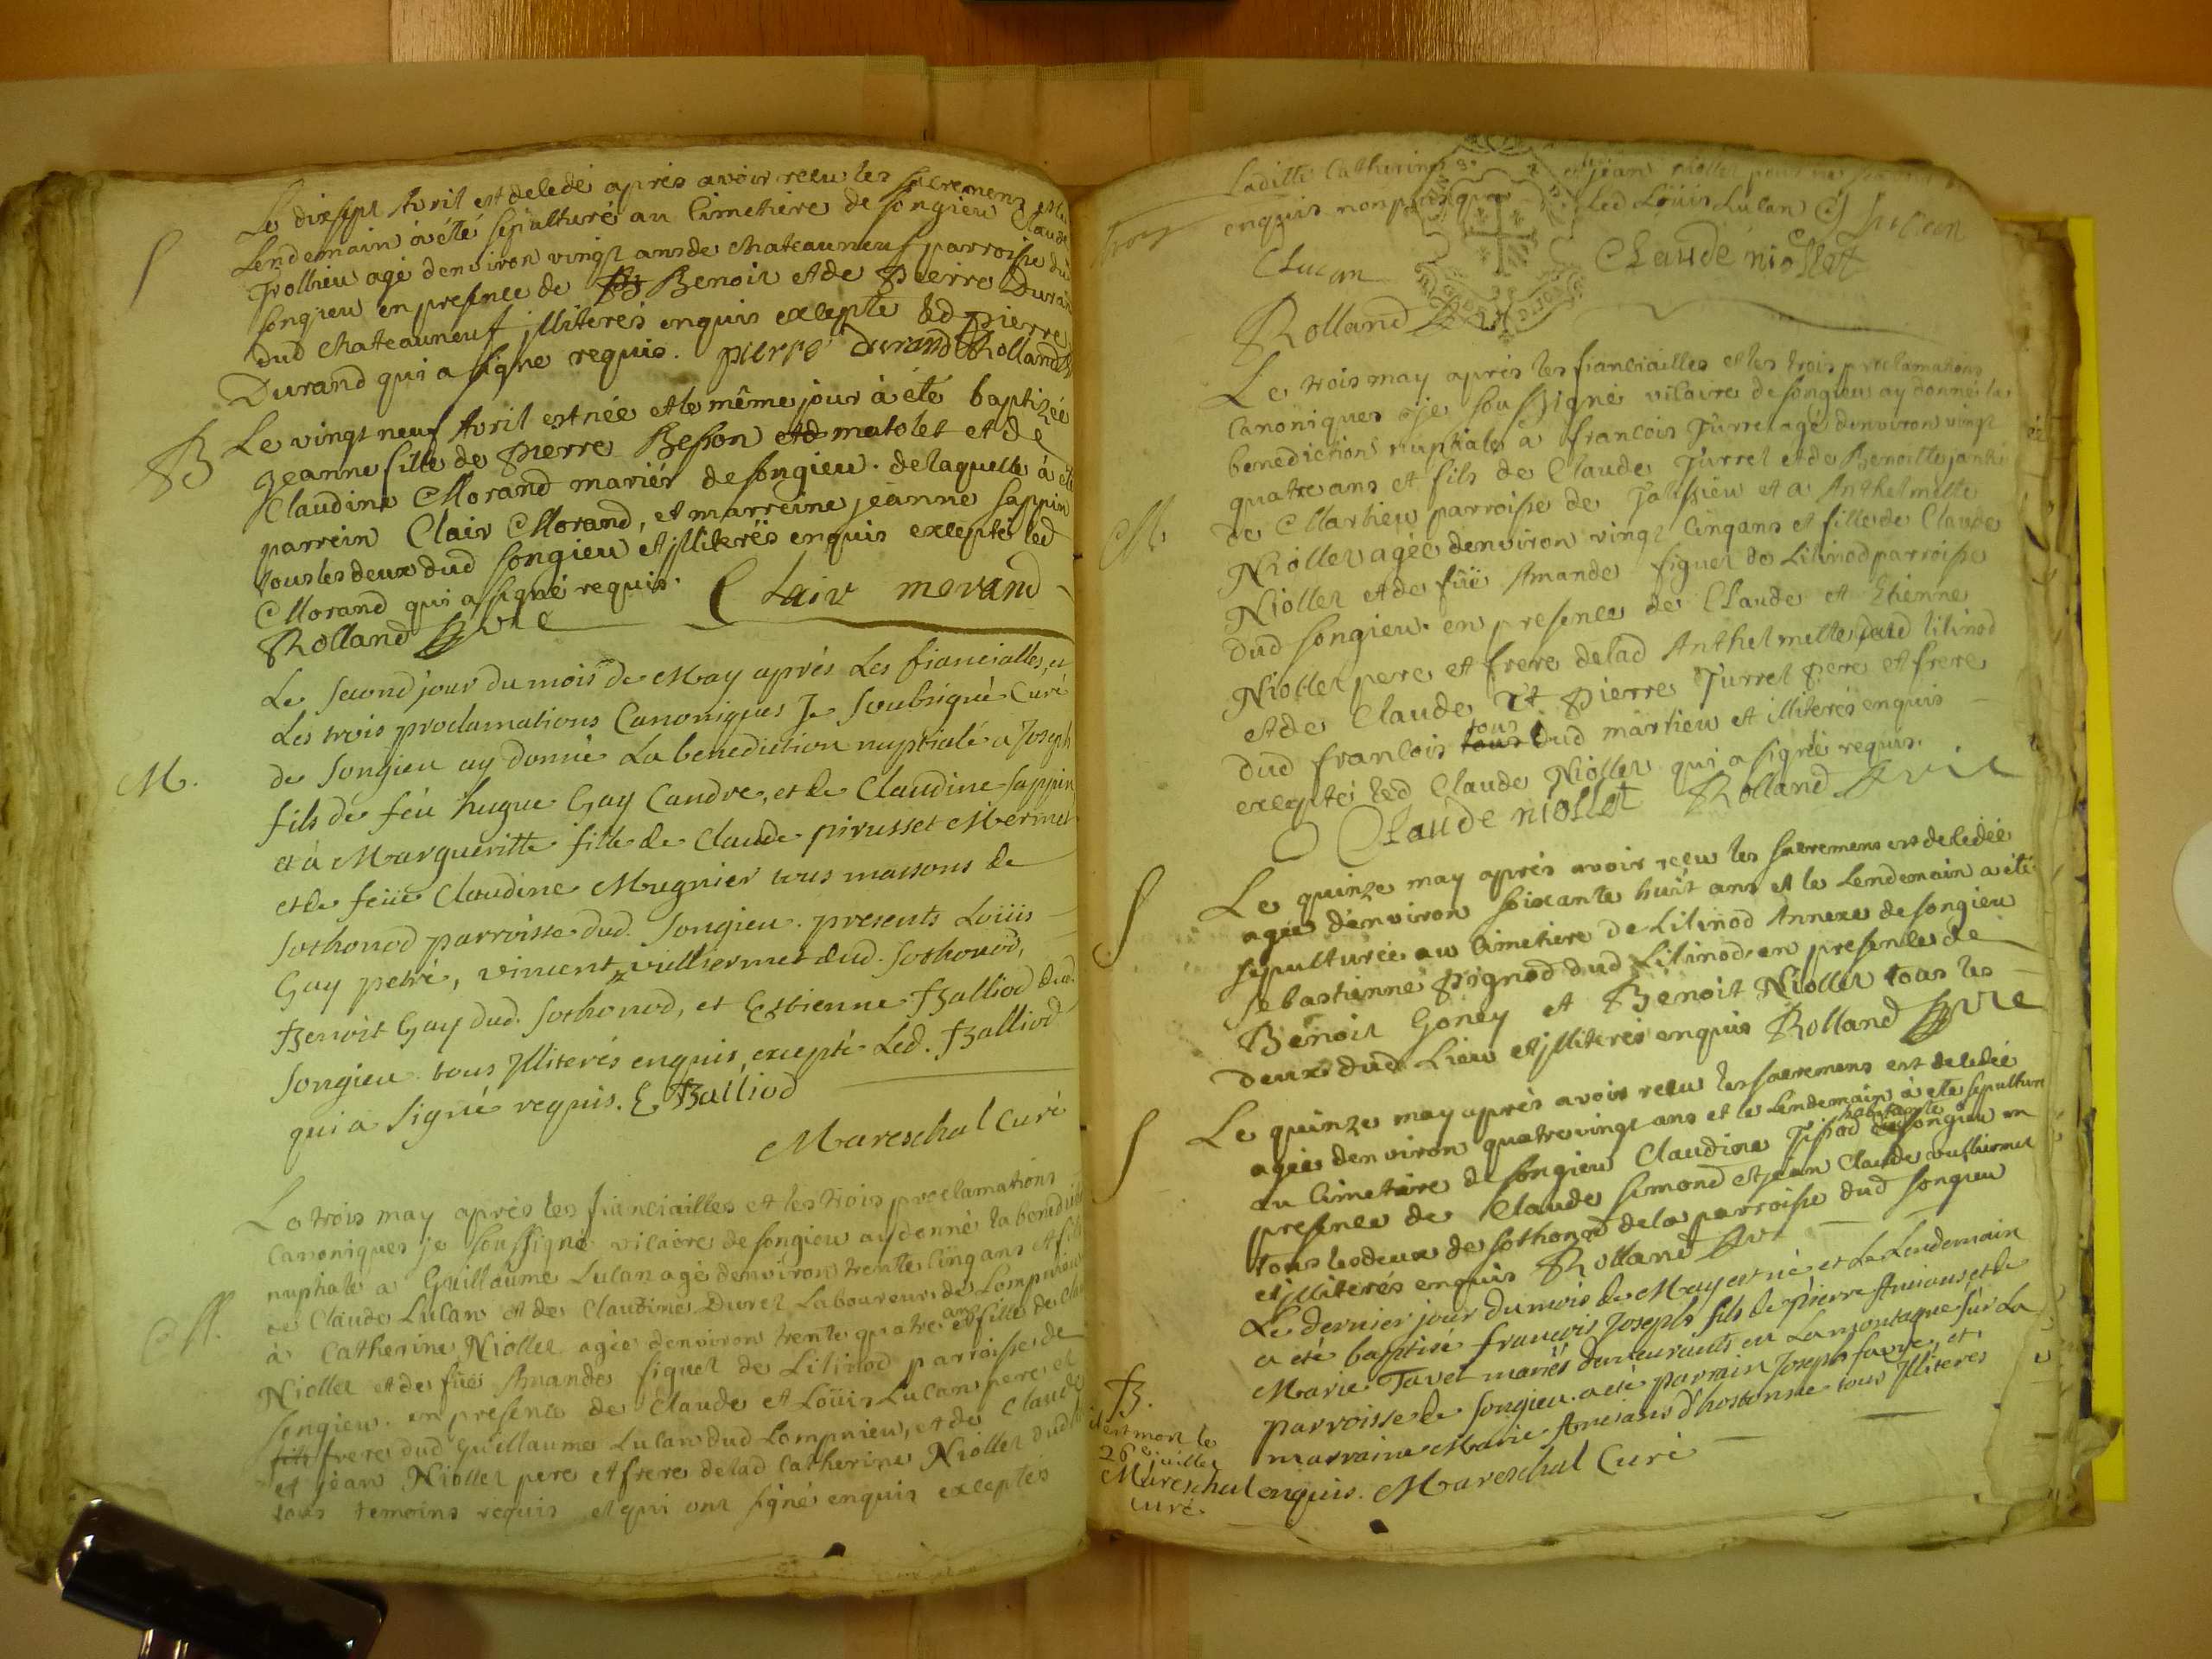 S
Le dixsept Avril est deledé aprés avoir reçu les sacremens et le
Lendemain à été sépulturé au Cimetiere de songieu Claude
agé denviron vingt ans de chateauneuf parroisse du
songieu en presence de Benoit et de Pierre Durand
dud chateauneuf jlliterés enquis excepté led pierre
Durand qui a signé requis. pierre durand Rolland
B
Le vingt neuf Avril est née et le même jour à été baptizée
Jeanne fille de Pierre Besson matolet et de
Claudine Morand mariés de songieu. de laquelle à été
parrein Clair Morand, et marreine jeanne sappin
tous les deux dud songieu et jlliterés enquis excepté led
Morand qui a signé requis. Clair morand
Rolland vre
M.
Le second jour du mois de May aprés Les fiancialles, et
Les trois proclamations Canoniques Je Soubsigné Curé
de Songieu ay donné La benediction nuptiale à Joseph
fils de feu hugue Gay Candre, et de Claudine sappin
et à Margueritte fille de Claude pirusset Mermet
et de feüe Claudine Mugnier tous massons de
Sothonod parroisse dud. Songieu. presents Loüis
Gay petré, vincent vulliermet dud. Sothonod,
Benoit Gay dud. Sothonod, et Estienne Balliod dud.
Songieu. tous Jlliterés enquis, excepté Led. Balliod
qui a signé requis. E Balliod
Mareschal Curé
M.
Le trois may aprés les fianciailles et les trois proclamations
Canoniques je soussigné vicaire de songieu ay donné la benedict
nuptiale a Guillaume Lucan agé denviron trente cinq ans et fils
de Claude Lucan et de Claudine Duret Laboureur de Lompnieu
à Catherine Niollet agée denviron trente quatre ans et fille de Clau
Niollet et de füe Amande figuet de Lilinod parroisse de
songieu. en presence de Claude et Loüis Lucan pere et
fils frere dud Guillaume Lucan dud Lompnieu, et de Claude
et jean Niollet pere et frere de lad Catherine Niollet dud
tous temoins requis et qui ont signé enquis exceptés
Laditte Catherine et jean niollet pour ne
enquis non plus que Led Loüis Lucan
CLucan Claude niollet
Rolland
M.
Le trois may aprés les fianciailles et les trois proclamations
Canoniques je soussigné vicaire de songieu ay donné la
benediction nuptiale à francois Jurret agé denviron vingt
quatre ans et fils de Claude Jurret et de Benoitte
de Martieu parroisse de et a Anthelmette
Niollet agée denviron vingt cinq ans et fille de Claude
Niollet et de füe Amande figuet de Lilinod parroisse
dud songieu. en presence de Claude et Etienne
Niollet pere et frere de lad Anthelmette dud lilinod
et de Claude Et Pierre Jurret Pere et frere
dud francois tous dud martieu et illiterés enquis
excepté led Claude Niollet qui a signé requis.
Claude niollet Rolland vre
S
Le quinze may aprés avoir reçu les sacremens est deledée
agée denviron soixante huit ans et le Lendemain a été
sépulturée au Cimetiere de Lilinod Annexe de songieu
Sebastienne Pignod dud Lilinod en presence de
Benoit Goney et Benoit Niollet tous les
deux dud Lieu et jlliterés enquis Rolland vre
S
Le quinze may aprés avoir reçu les sacremens est deledée
agée denviron quatre vingt ans et le Lendemain à eté sépulturé
au Cimetiere de songieu Claudine habitante à songieu en
presence de Claude simond et jean Claude vulliermet
tous les deux de sothonod de la parroisse dud songieu
et jlliterés enquis Rolland vre
B.
Le dernier jour du mois de May est né et Le Lendemain
a été baptisé francois Joseph fils de pierre Anians et de
Marie Tavel mariés demeurants en La montagne sur La
parroisse de Songieu. a eté parrain Joseph favre, et
marraine Marie Anians d'hostonne tous Jlliterés
enquis. Mareschal Curé
il est mort le
26e juillet
Mareschal
curé.